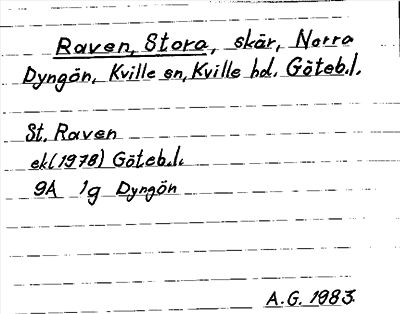 Raven, Stora, skär, Norra
Dyngön, Kville sn, Kville hd. Göteb.l.
St. Raven
ek(1978) Göteb.l.
9A 1g Dyngön
A.G. 1983